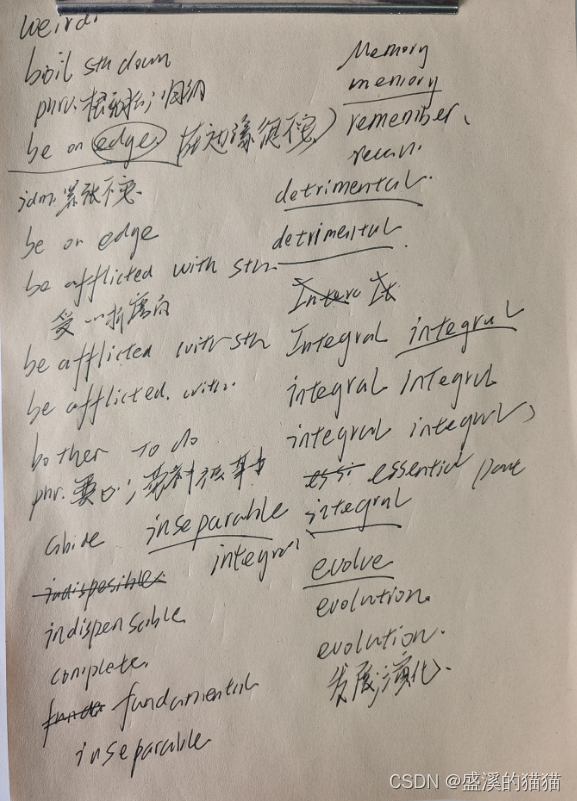 weird.
boil sth down
phrv.
be on edge.
idm. 紧张不安.
be on edge
be afflicted with sth.
受…折磨的
be afflicted with sth
be afflicted. with.
bother to do
phr.
abide inseparable
integral
indisposible
indispensable
complete.
fundamental
inseparable
Memory
memory
remember.
detrimental.
detrimental.
Integral integral
integral integral
integral integral
essential part
integral
evolve
evolution.
evolution.
发展,演化.
CSDN @盛溪的猫猫